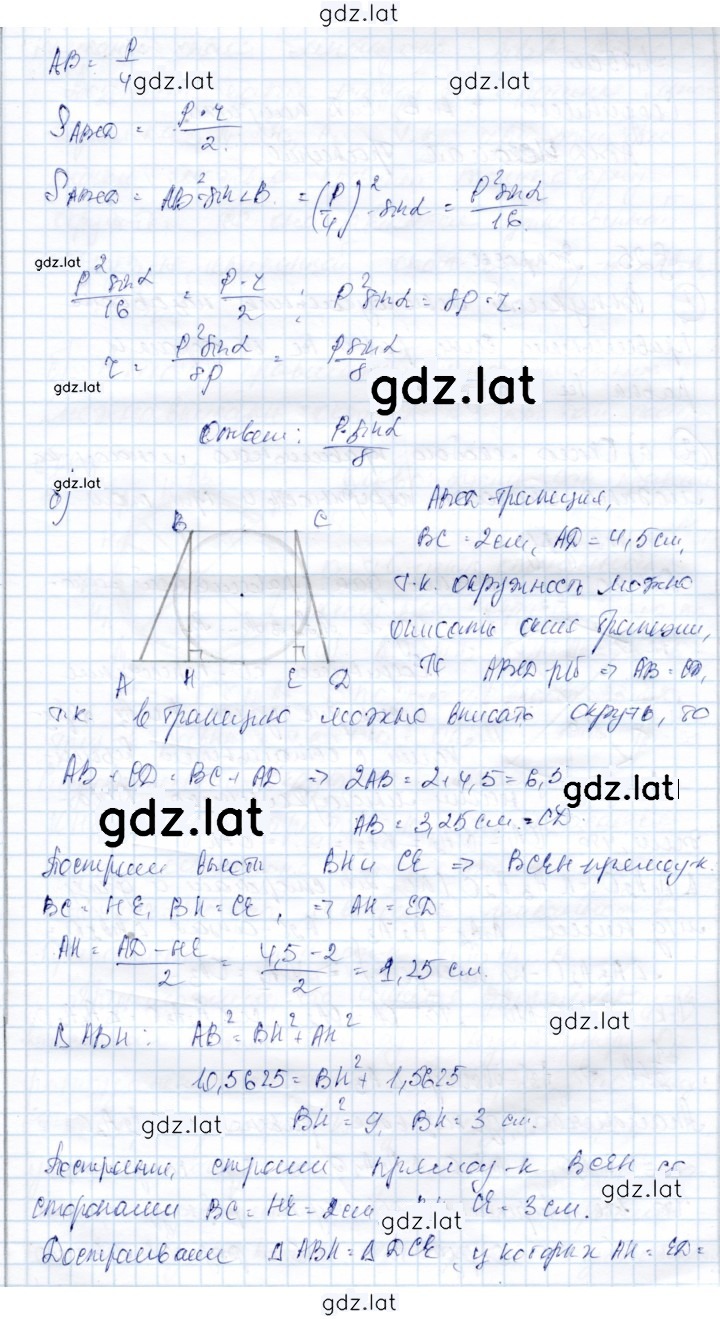 gdz.lat
AB = P/4
gdz.lat gdz.lat
S ABCD = P·r/2
S ABCD = AB²·sin∠B = (P/4)²·sinα = P²sinα/16
gdz.lat
P²sinα/16 = P·r/2 ; P²sinα = 8P·r.
r = P²sinα/8P = Psinα/8
gdz.lat gdz.lat
Ответ: P·sinα/8
gdz.lat
б)
ABCD - трапеция,
B C
BC = 2 см, AD = 4,5 см,
т.к. окружность можно
описать около трапеции,
то ABCD - р/б => AB = CD,
A H E D
т.к. в трапецию можно вписать окруж, то
AB + CD = BC + AD => 2AB = 2+4,5 = 6,5
gdz.lat
AB = 3,25 см = CD.
gdz.lat
Построим высоты BH и CE => BCEH - прямоуг-к.
BC = HE, BH = CE, => AH = ED
AH = AD - HE/2 = 4,5 - 2/2 = 1,25 см.
gdz.lat
В ABH: AB² = BH² + AH²
10,5625 = BH² + 1,5625
BH² = 9, BH = 3 см.
gdz.lat
Построение, строим прямоуг-к BCEH со
gdz.lat
сторонами BC = HE = 2 см CE = 3 см.
gdz.lat
Достраиваем Δ ABH = Δ DCE, у которых AH = ED =
gdz.lat